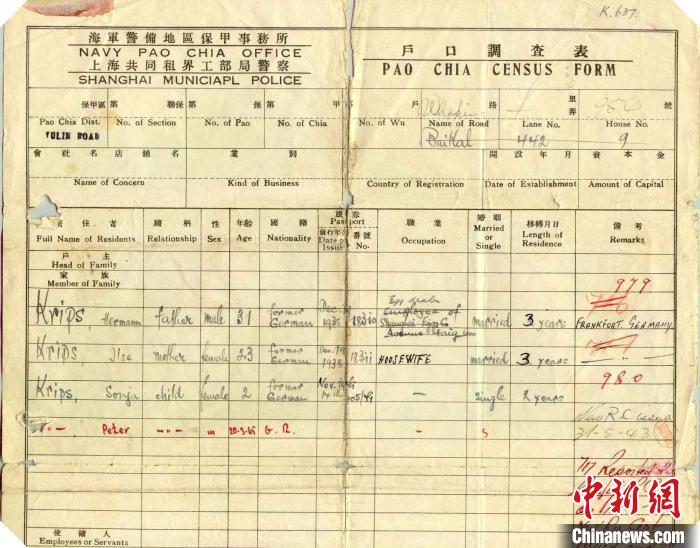 K.637.
海軍警備地區保甲事務所
NAVY PAO CHIA OFFICE
上海共同租界工部局警察
SHANGHAI MUNICIAPL POLICE
戶口調查表
PAO CHIA CENSUS FORM
保甲區 第 聯保 第 保 第 甲 第 戶 路 里弄 號
Pao Chia Dist. No. of Section No. of Pao No. of Chia No. of Wu Name of Road Lane No. House No.
YULIN ROAD Baikal 442 9
會社名店舖名 業別 開設年月 資本金
Name of Concern Kind of Business Country of Registration Date of Establishment Amount of Capital
居住者 續柄 性 年齡 國籍 旅券 職業 婚姻 移轉月日 備考
Passport
發行年月 番號
Full Name of Residents Relationship Sex Age Nationality Date of Issue No. Occupation Married or Single Length of Residence Remarks
戶主
Head of Family
家族
Member of Family
979
Krips Hermann father male 31 former German 1938 18310 Egg dealer employee of Shanghai Eggs Co married 3 years FRANKFORT, GERMANY
Krips, Ilse mother female 23 former German 1938 18311 HOUSEWIFE married 3 years
980
Krips, Sonja child female 2 former German Nov. 14th — single 2 years
31-5-43
-"- Peter -"- m 20-3-45 G.R. — s
Reported
使傭人
Employees or Servants
中新网
Chinanews.com